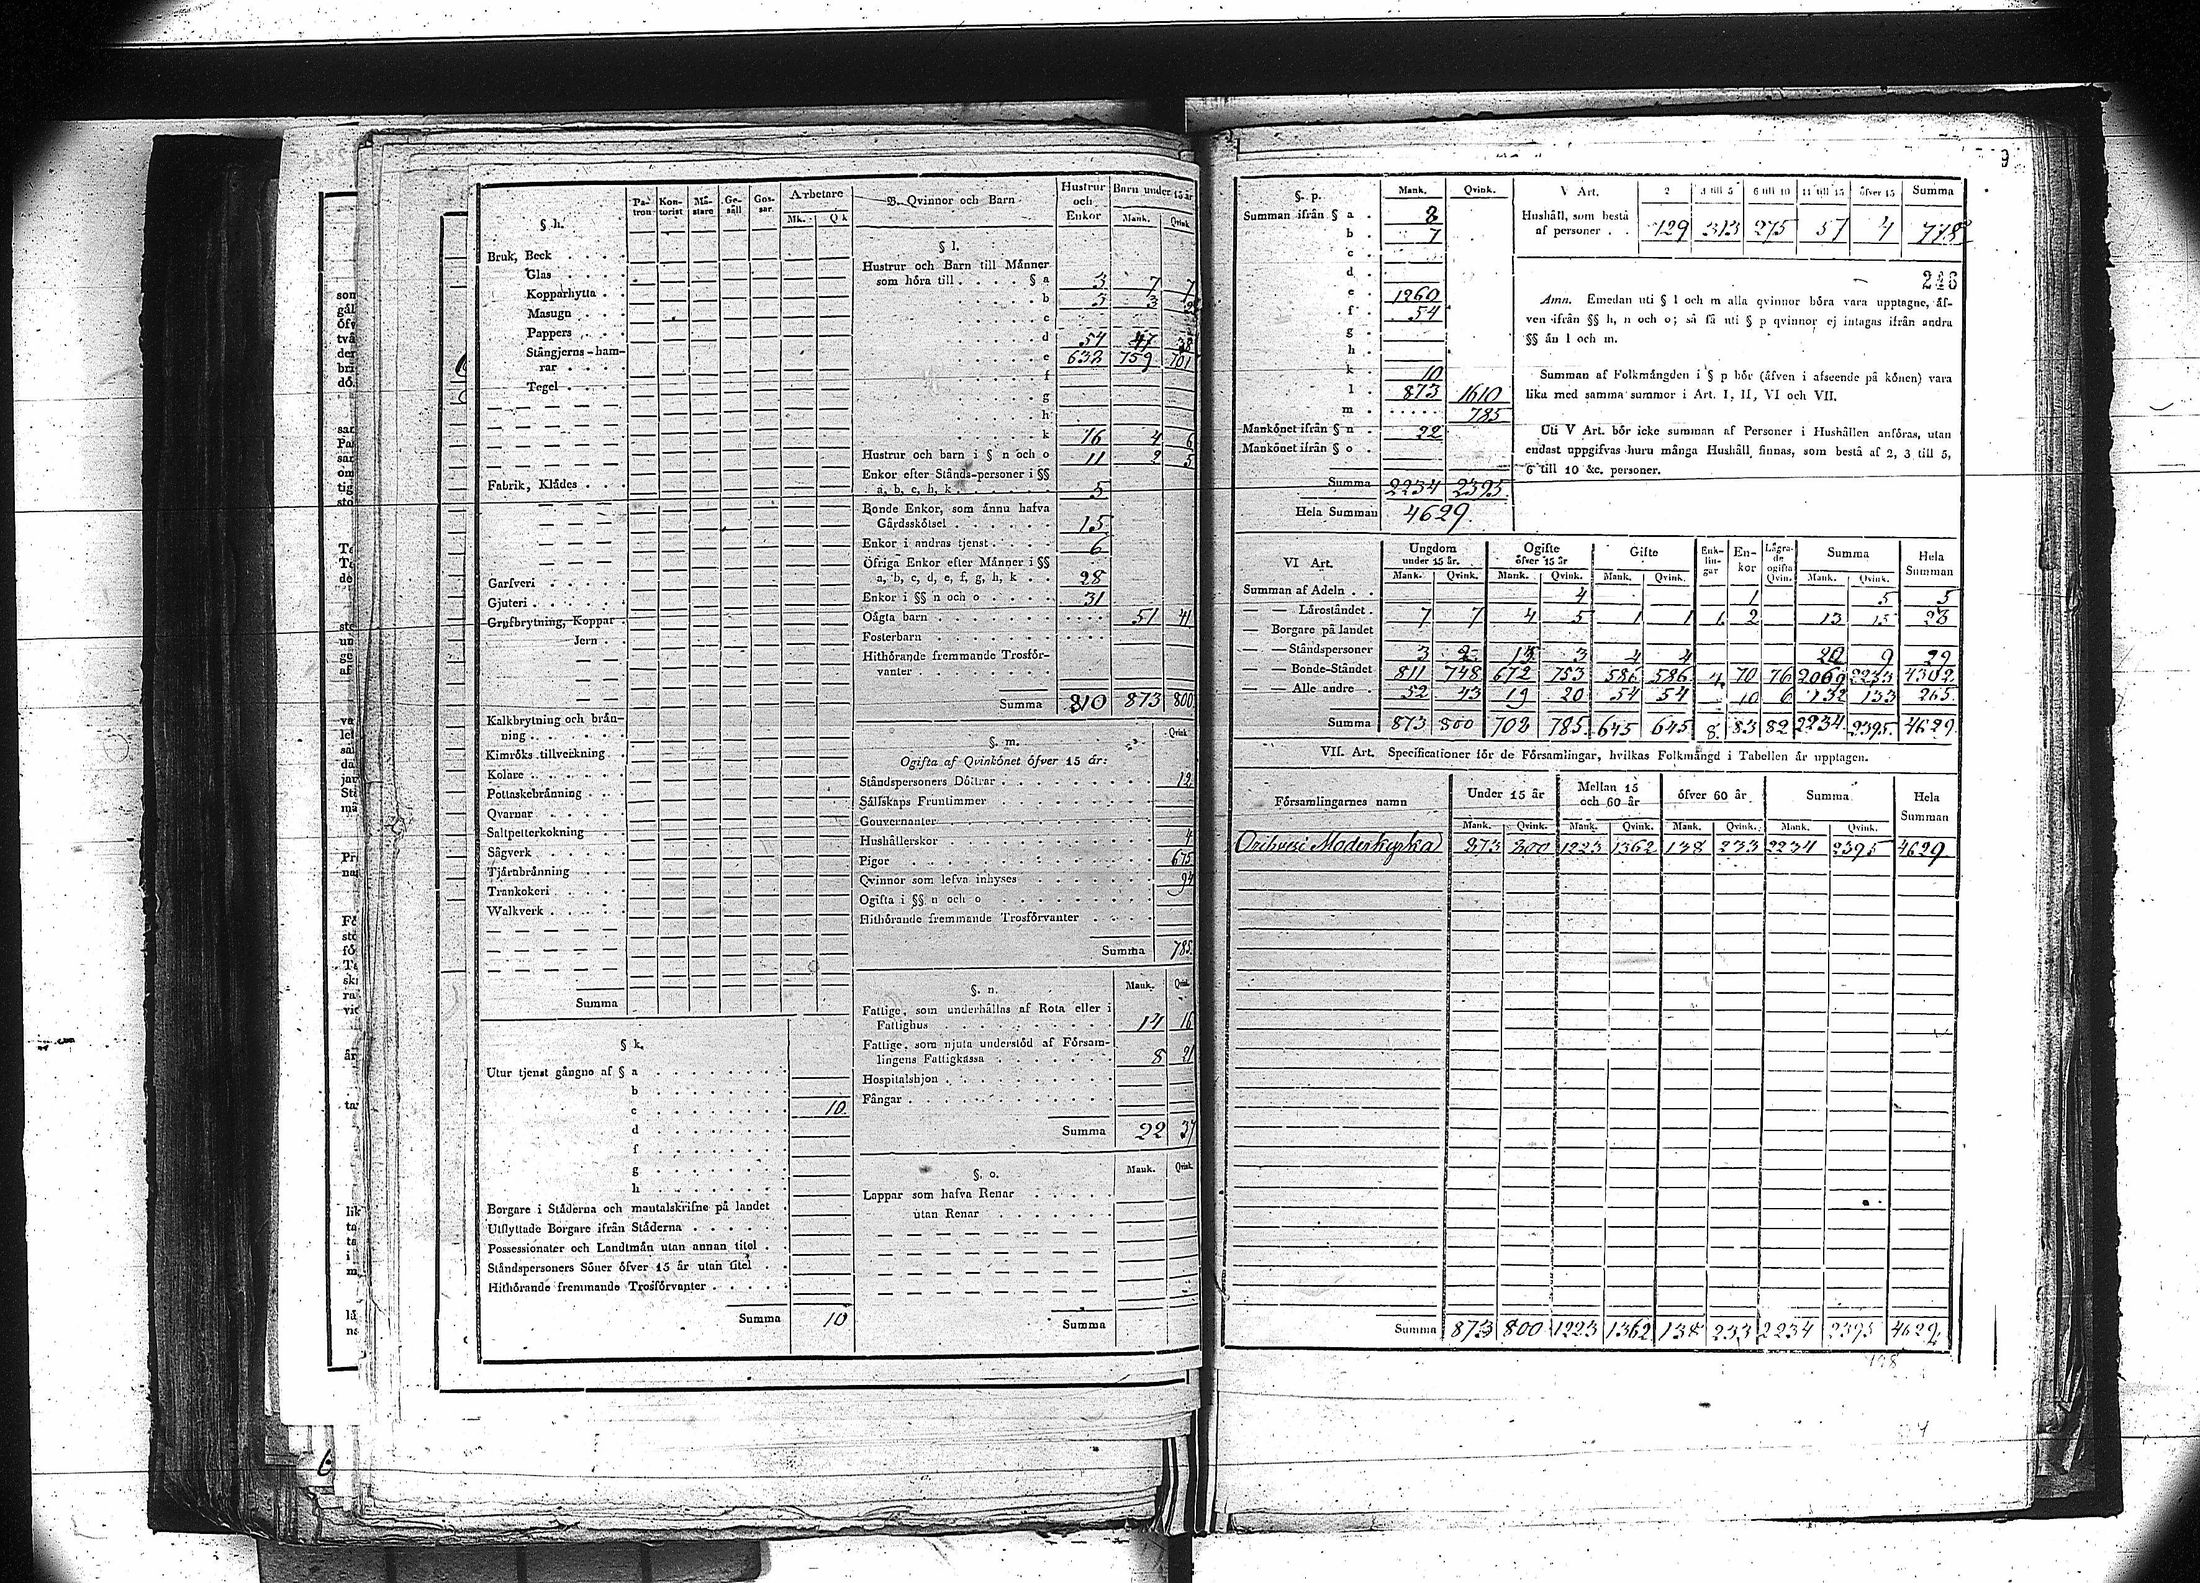 § h.
Pa-tron Kon-torist Mä-stare Ge-säll Gos-sar Arbetare
Mk. Qk
Bruk, Beck
Glas
Kopparhytta
Masugn
Pappers
Stångjerns-ham-
rar
Tegel
Fabrik, Klådes
Garfveri
Gjuteri
Grufbrytning, Koppar
Jern
Kalkbrytning och brån-
ning
Kimröks tillverkning
Kolare
Pottaskebrånning
Qvarnar
Saltpetterkokning
Sågverk
Tjårubrånning
Trankokeri
Walkverk
Summa
§ k.
Utur tjenst gångno af § a
b
c 10
d
f
g
h
Borgare i Ståderna och mantalskrifne på landet
Utflyttade Borgare ifrån Ståderna
Possessionater och Landtmån utan annan titel
Ståndspersoners Söner öfver 15 år utan titel
Hithörande fremmande Trosförvanter
Summa 10
B. Qvinnor och Barn
Hustrur och Enkor Barn under 15 år
Mank. Qvink.
§ l.
Hustrur och Barn till Månner
som höra till § a 3 7 7
b 5 3
c
d 54 47 38
e 632 759 701
f
g
h
k 16 4 6
Hustrur och barn i § n och o 11 2 5
Enkor efter Stånds-personer i §§
a, b, c, h, k 5
Bonde Enkor, som ånnu hafva
Gårdsskötsel 15
Enkor i andras tjenst 6
Öfriga Enkor efter Månner i §§
a, b, c, d, e, f, g, h, k 28
Enkor i §§ n och o 31
Oågta barn 51 41
Fosterbarn
Hithörande fremmande Trosför-
vanter
Summa 810 873 800
§. m. Qvink.
Ogifta af Qvinkönet öfver 15 år:
Ståndspersoners Döttrar 12
Sållskaps Fruntimmer
Gouvernanter
Hushållerskor 4
Pigor 675
Qvinnor som lefva inhyses 94
Ogifta i §§ n och o
Hithörande fremmande Trosförvanter
Summa 785.
§. n. Mank. Qvink.
Fattige, som underhållas af Rota eller i
Fattighus 14 16
Fattige, som njuta understöd af Försam-
lingens Fattigkassa 8 21
Hospitalshjon
Fångar
Summa 22 37
§. o. Mank. Qvink.
Lappar som hafva Renar
utan Renar
Summa
9
§. p. Mank. Qvink.
Summan ifrån § a 8
b 7
c
d
e 1260
f 54
g
h
k 10
l 873 1610
m 785
Mankönet ifrån § n 22
Mankönet ifrån § o
Summa 2234 2395.
Hela Summan 4629.
V Art. 2 3 till 5 6 till 10 11 till 15 öfver 15 Summa
Hushåll, som bestå
af personer 129 313 275 57 4 778
246
Anm. Emedan uti § l och m alla qvinnor böra vara upptagne, åf-
ven ifrån §§ h, n och o; så få uti § p qvinnor ej intagas ifrån andra
§§ ån l och m.
Summan af Folkmångden i § p bör (åfven i afseende på könen) vara
lika med samma summor i Art. I, II, VI och VII.
Uti V Art. bör icke summan af Personer i Hushållen anföras, utan
endast uppgifvas huru många Hushåll finnas, som bestå af 2, 3 till 5,
6 till 10 &c. personer.
VI Art. Ungdom under 15 år. Ogifte öfver 15 år Gifte Enk-lin-gar En-kor Lågra-de ogifta Qvin. Summa Hela Summan
Mank. Qvink. Mank. Qvink. Mank. Qvink. Mank. Qvink.
Summan af Adeln 4 1 5 5
— — Låroståndet 7 7 4 5 1 1 1 2 13 15 28
— Borgare på landet
— — Ståndspersoner 3 2 13 3 4 4 20 9 29
— — Bonde-Ståndet 811 748 672 753 586 586 70 76 2069 2233 4302
— — Alle andre 52 43 19 20 54 54 10 6 132 133 265.
Summa 873 800 708 785. 645 645 8. 83 82 2234. 2395. 4629.
VII. Art. Specificationer för de Församlingar, hvilkas Folkmångd i Tabellen år upptagen.
Församlingarnes namn Under 15 år Mellan 15 och 60 år öfver 60 år Summa Hela Summan
Mank. Qvink. Mank. Qvink. Mank. Qvink. Mank. Qvink.
Orihvesi Moderkyrka 873 800 1223 1362 138 233 2234 2395 4629
Summa 873 800 1223 1362 138 233 2234 2395 4629